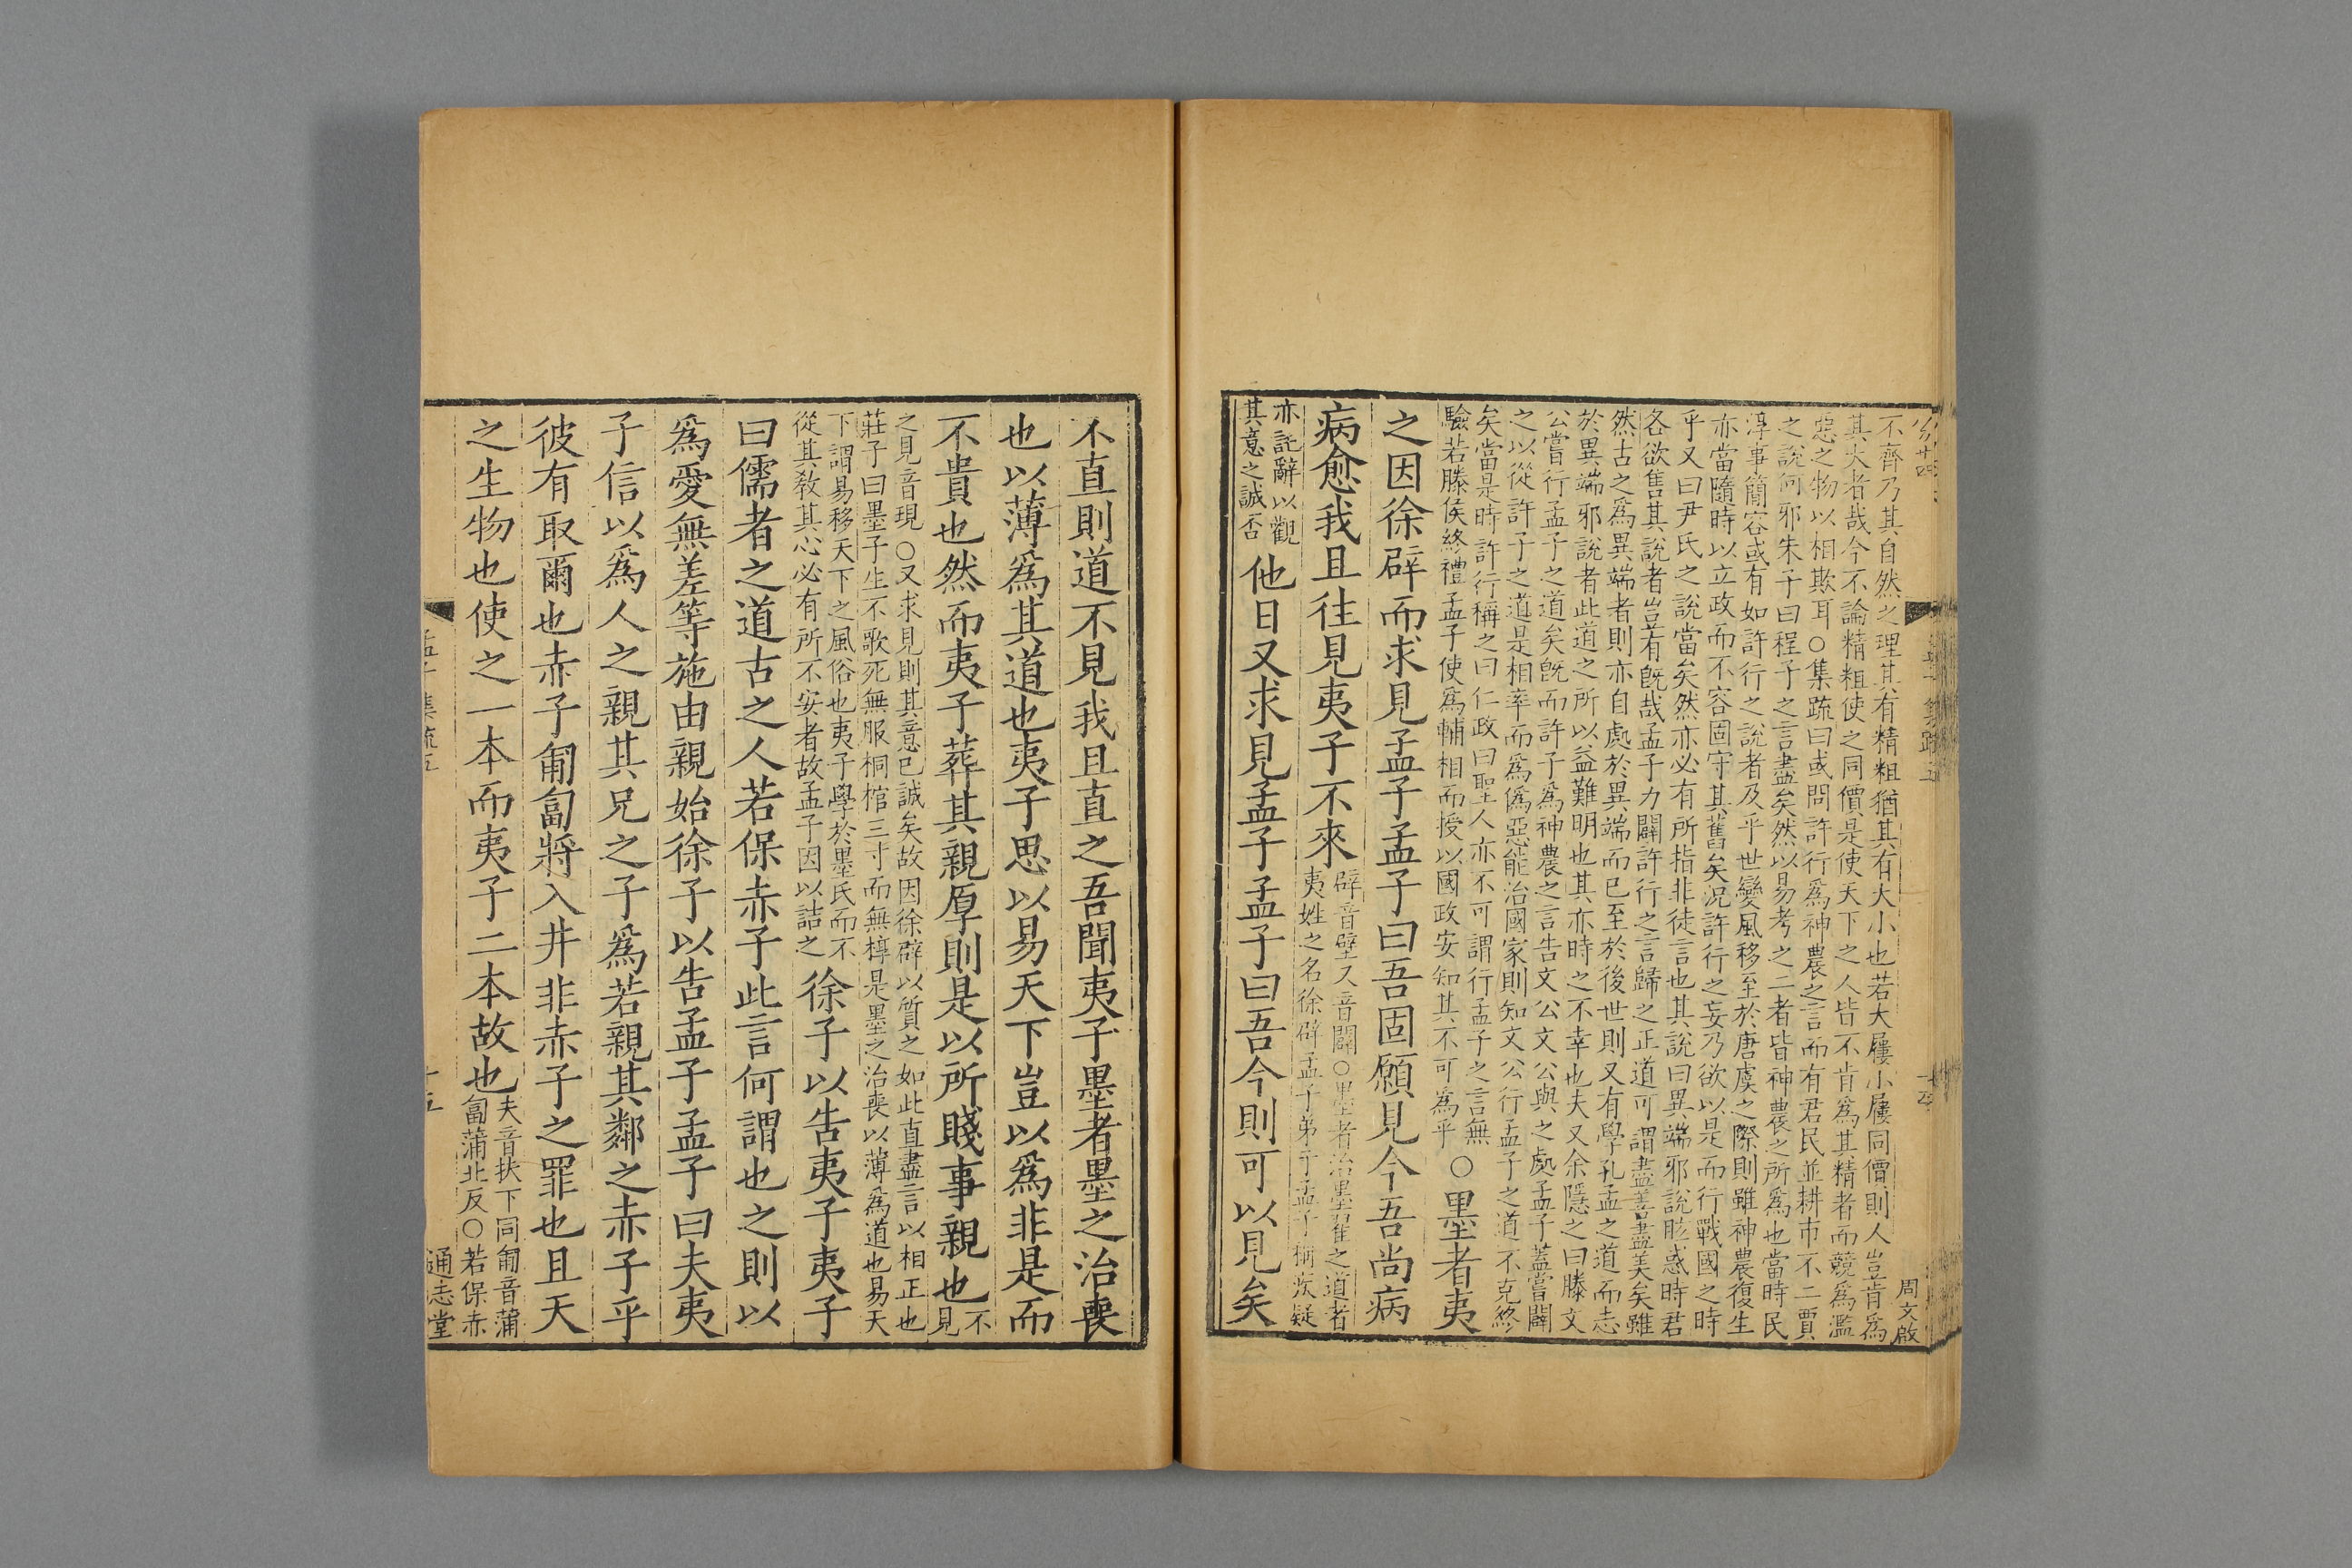 不齊乃其自然之理其有精粗猶其有大小也若大屨小屨同價則人豈肯爲
其大者哉今不論精粗使之同價是使天下之人皆不肯爲其精者而競爲濫
惡之物以相欺耳○集疏曰或問許行爲神農之言而有君民並耕市不二賈
之說何邪朱子曰程子之言盡矣然以易考之二者皆神農之所爲也當時民
淳事簡容或有如許行之說者及乎世變風移至於唐虞之際則雖神農復生
亦當隨時以立政而不容固守其舊矣況許行之妄乃欲以是而行戰國之時
乎又曰尹氏之說當矣然亦必有所指非徒言也其說曰異端邪說眩惑時君
各欲售其說者豈有旣哉孟子力闢許行之言歸之正道可謂盡善盡美矣雖
然古之爲異端者則亦自處於異端而已至於後世則又有學孔孟之道而志
於異端邪說者此道之所以益難明也其亦時之不幸也夫又余隱之曰滕文
公嘗行孟子之道矣旣而許子爲神農之言告文公文公與之處孟子蓋嘗闢
之以從許子之道是相率而爲僞惡能治國家則知文公行孟子之道不克終
矣當是時許行稱之曰仁政曰聖人亦不可謂行孟子之言無
驗若滕侯終禮孟子使爲輔相而授以國政安知其不可爲乎
○墨者夷
之因徐辟而求見孟子孟子曰吾固願見今吾尚病
病愈我且往見夷子不來
辟音壁又音闢○墨者治墨翟之道者
夷姓之名徐辟孟子弟子孟子稱疾疑
亦託辭以觀
其意之誠否
他日又求見孟子孟子曰吾今則可以見矣
周文啟
不直則道不見我且直之吾聞夷子墨者墨之治喪
也以薄爲其道也夷子思以易天下豈以爲非是而
不貴也然而夷子葬其親厚則是以所賤事親也
不
見
之見音現○又求見則其意已誠矣故因徐辟以質之如此直盡言以相正也
莊子曰墨子生不歌死無服桐棺三寸而無椁是墨之治喪以薄爲道也易天
下謂易移天下之風俗也夷子學於墨氏而不
從其教其心必有所不安者故孟子因以詰之
徐子以告夷子夷子
曰儒者之道古之人若保赤子此言何謂也之則以
爲愛無差等施由親始徐子以告孟子孟子曰夫夷
子信以爲人之親其兄之子爲若親其鄰之赤子乎
彼有取爾也赤子匍匐將入井非赤子之罪也且天
之生物也使之一本而夷子二本故也
夫音扶下同匍音蒲
匐蒲北反○若保赤
通志堂